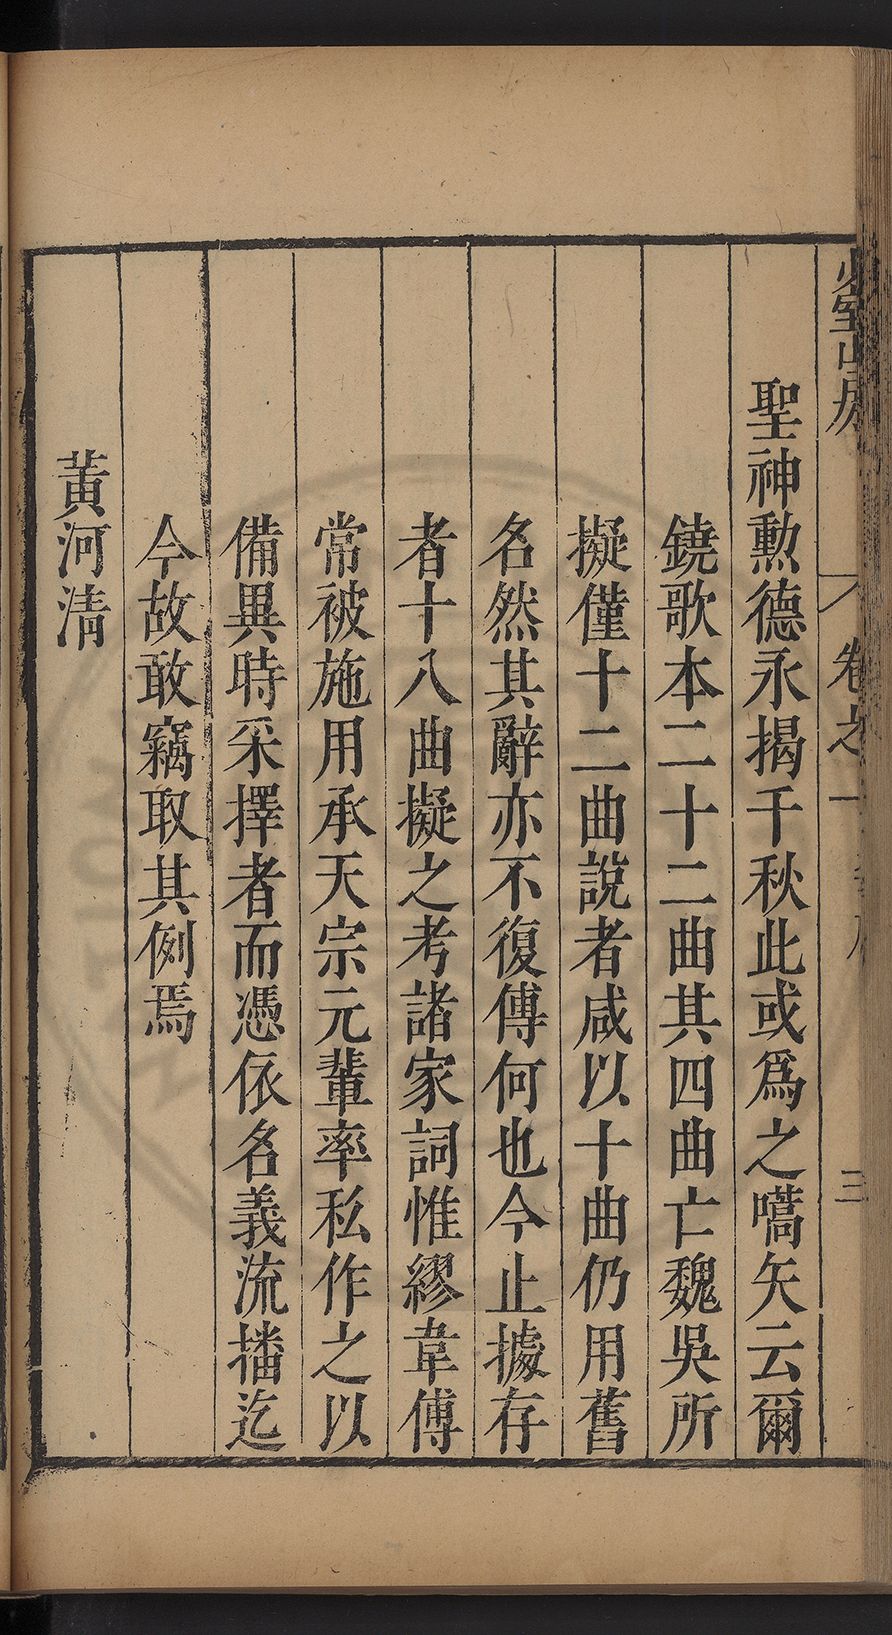 聖神勲德永揭千秋此或爲之嚆矢云爾
鐃歌本二十二曲其四曲亡魏吳所
擬僅十二曲說者咸以十曲仍用舊
名然其辭亦不復傳何也今止據存
者十八曲擬之考諸家詞惟繆韋傅
常被施用承天宗元輩率私作之以
備異時采擇者而憑依名義流播迄
今故敢竊取其例焉
黃河清
卷之一
三